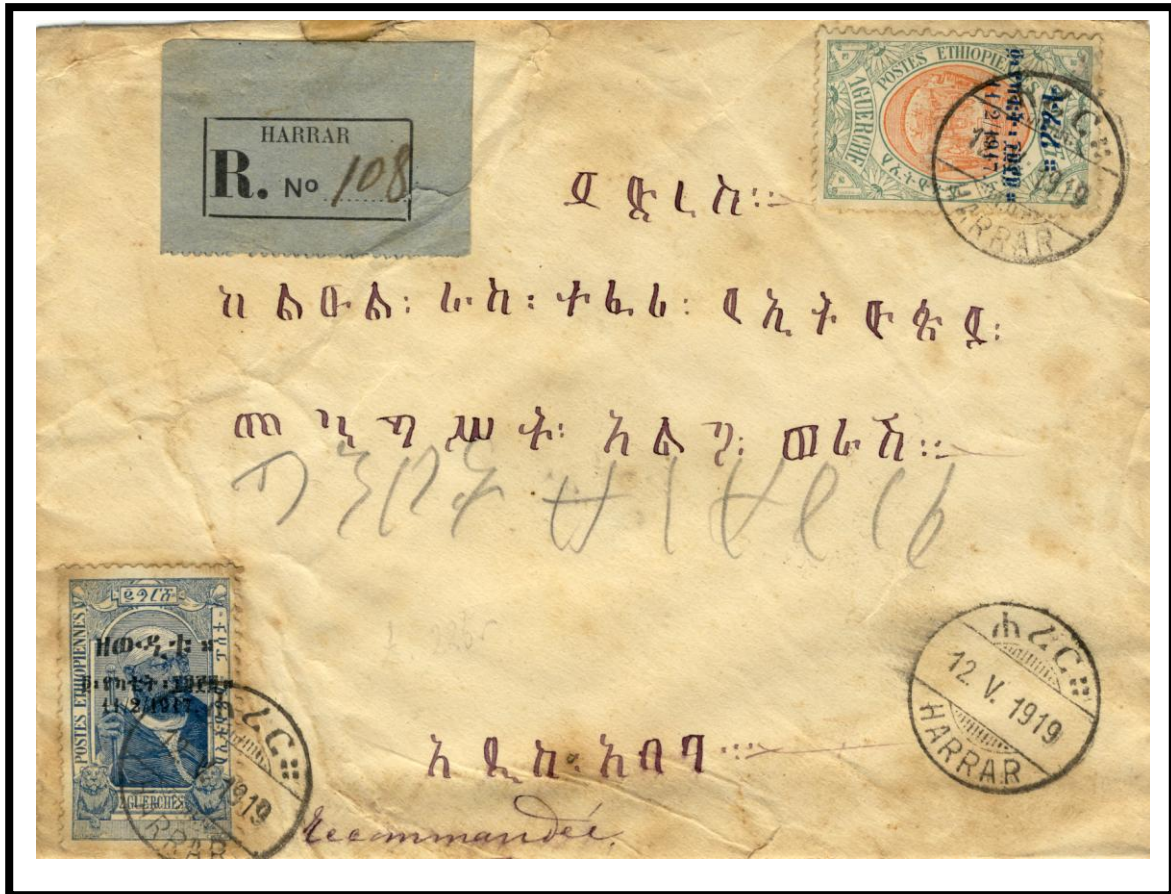 HARRAR
R. No 108
POSTES ETHIOPIENNES
1 GUERCHE
11/2/1917.
ሐረር።
1919
HARRAR
ይድረስ።
ከልዑል፡ ራስ፡ ተፈሪ፡ የኢትዮጵያ፡
መንግሥት፡ አልጋ፡ ወራሽ።
ግንቦት
ዘውዲቱ ።
11/2/1917.
POSTES ETHIOPIENNES
2 GUERCHES
ሐረር።
1919
HARRAR
ሐረር።
12. V. 1919
HARRAR
አዲስ፡አበባ።
Recommandée.